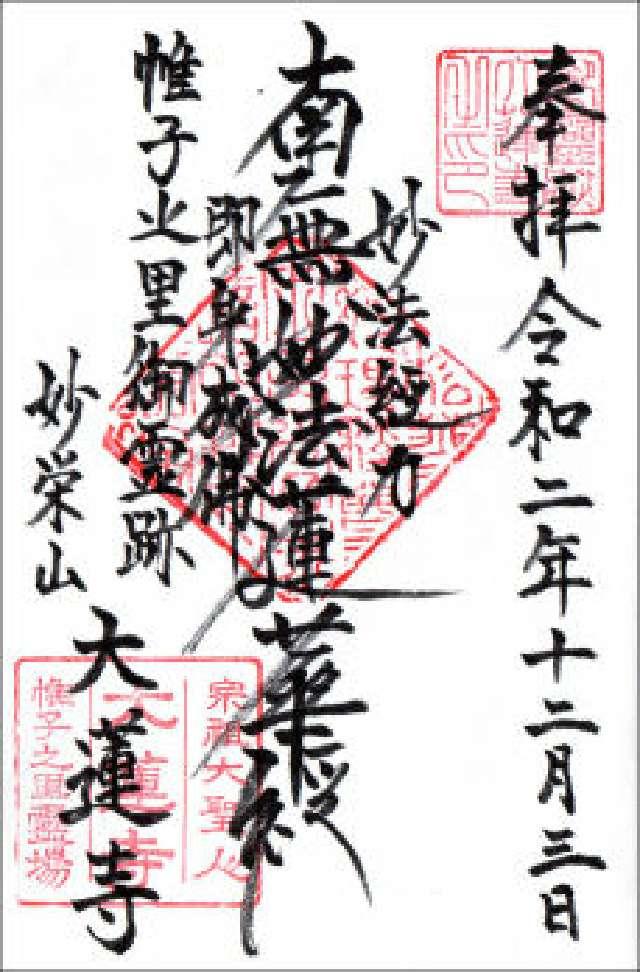 奉拝 令和二年十二月三日
妙法経力
南無妙法蓮華経
即身成佛
帷子之里御霊跡
妙栄山
大蓮寺
宗祖大聖人
大蓮寺
帷子之里霊場